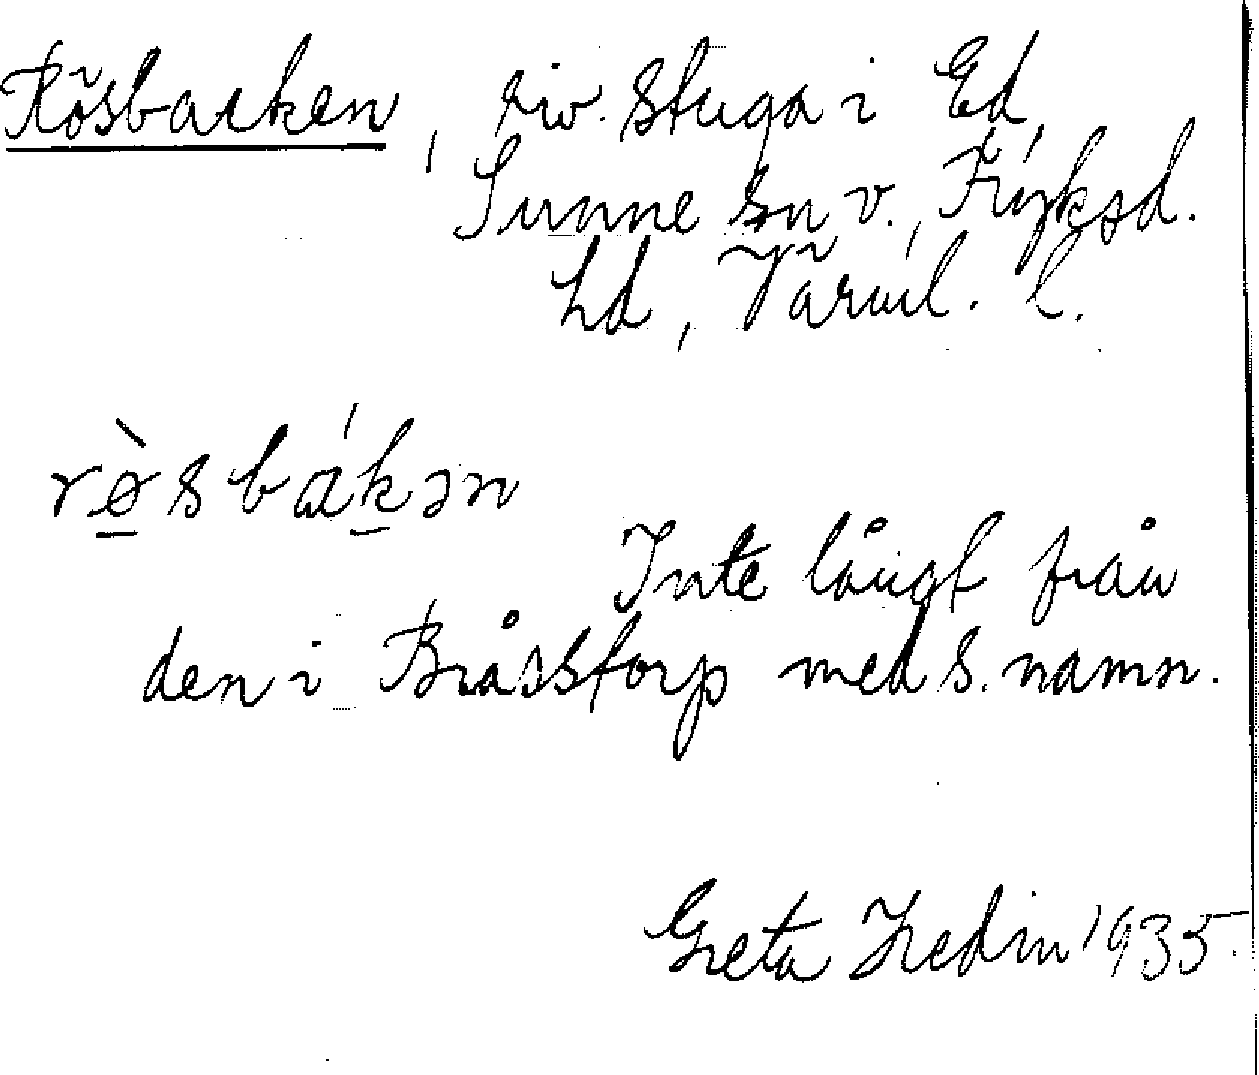 Rösbacken, riv. stuga i Ed,
Sunne sn v., Fryksd.
hd, Värml. l.
rø̀sbákən
Inte långt från
den i Bråsstorp med s. namn.
Greta Hedin 1935.